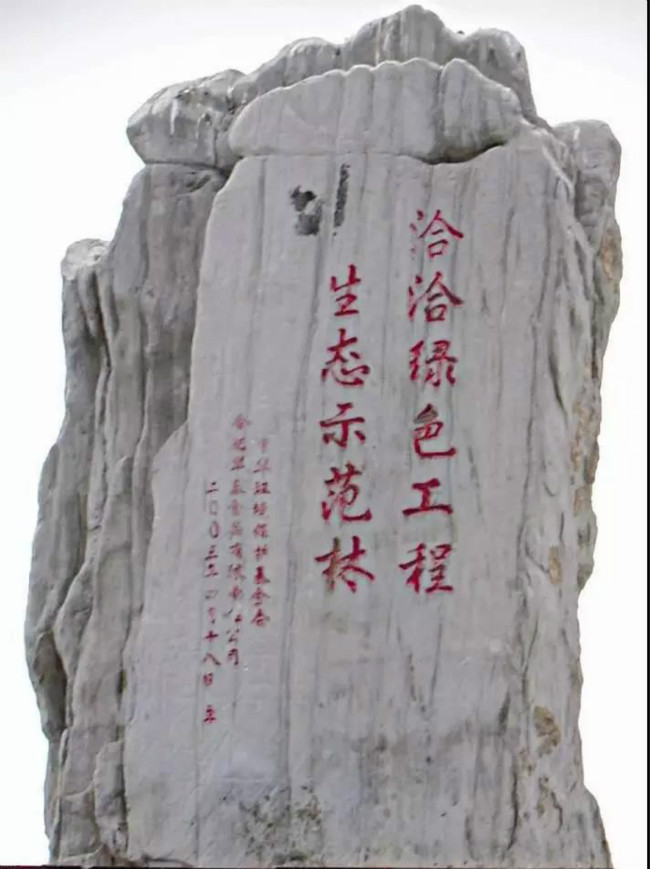 洽洽绿色工程
生态示范林
中华环境保护基金会
合肥华泰食品有限责任公司
二〇〇三年四月十八日 立